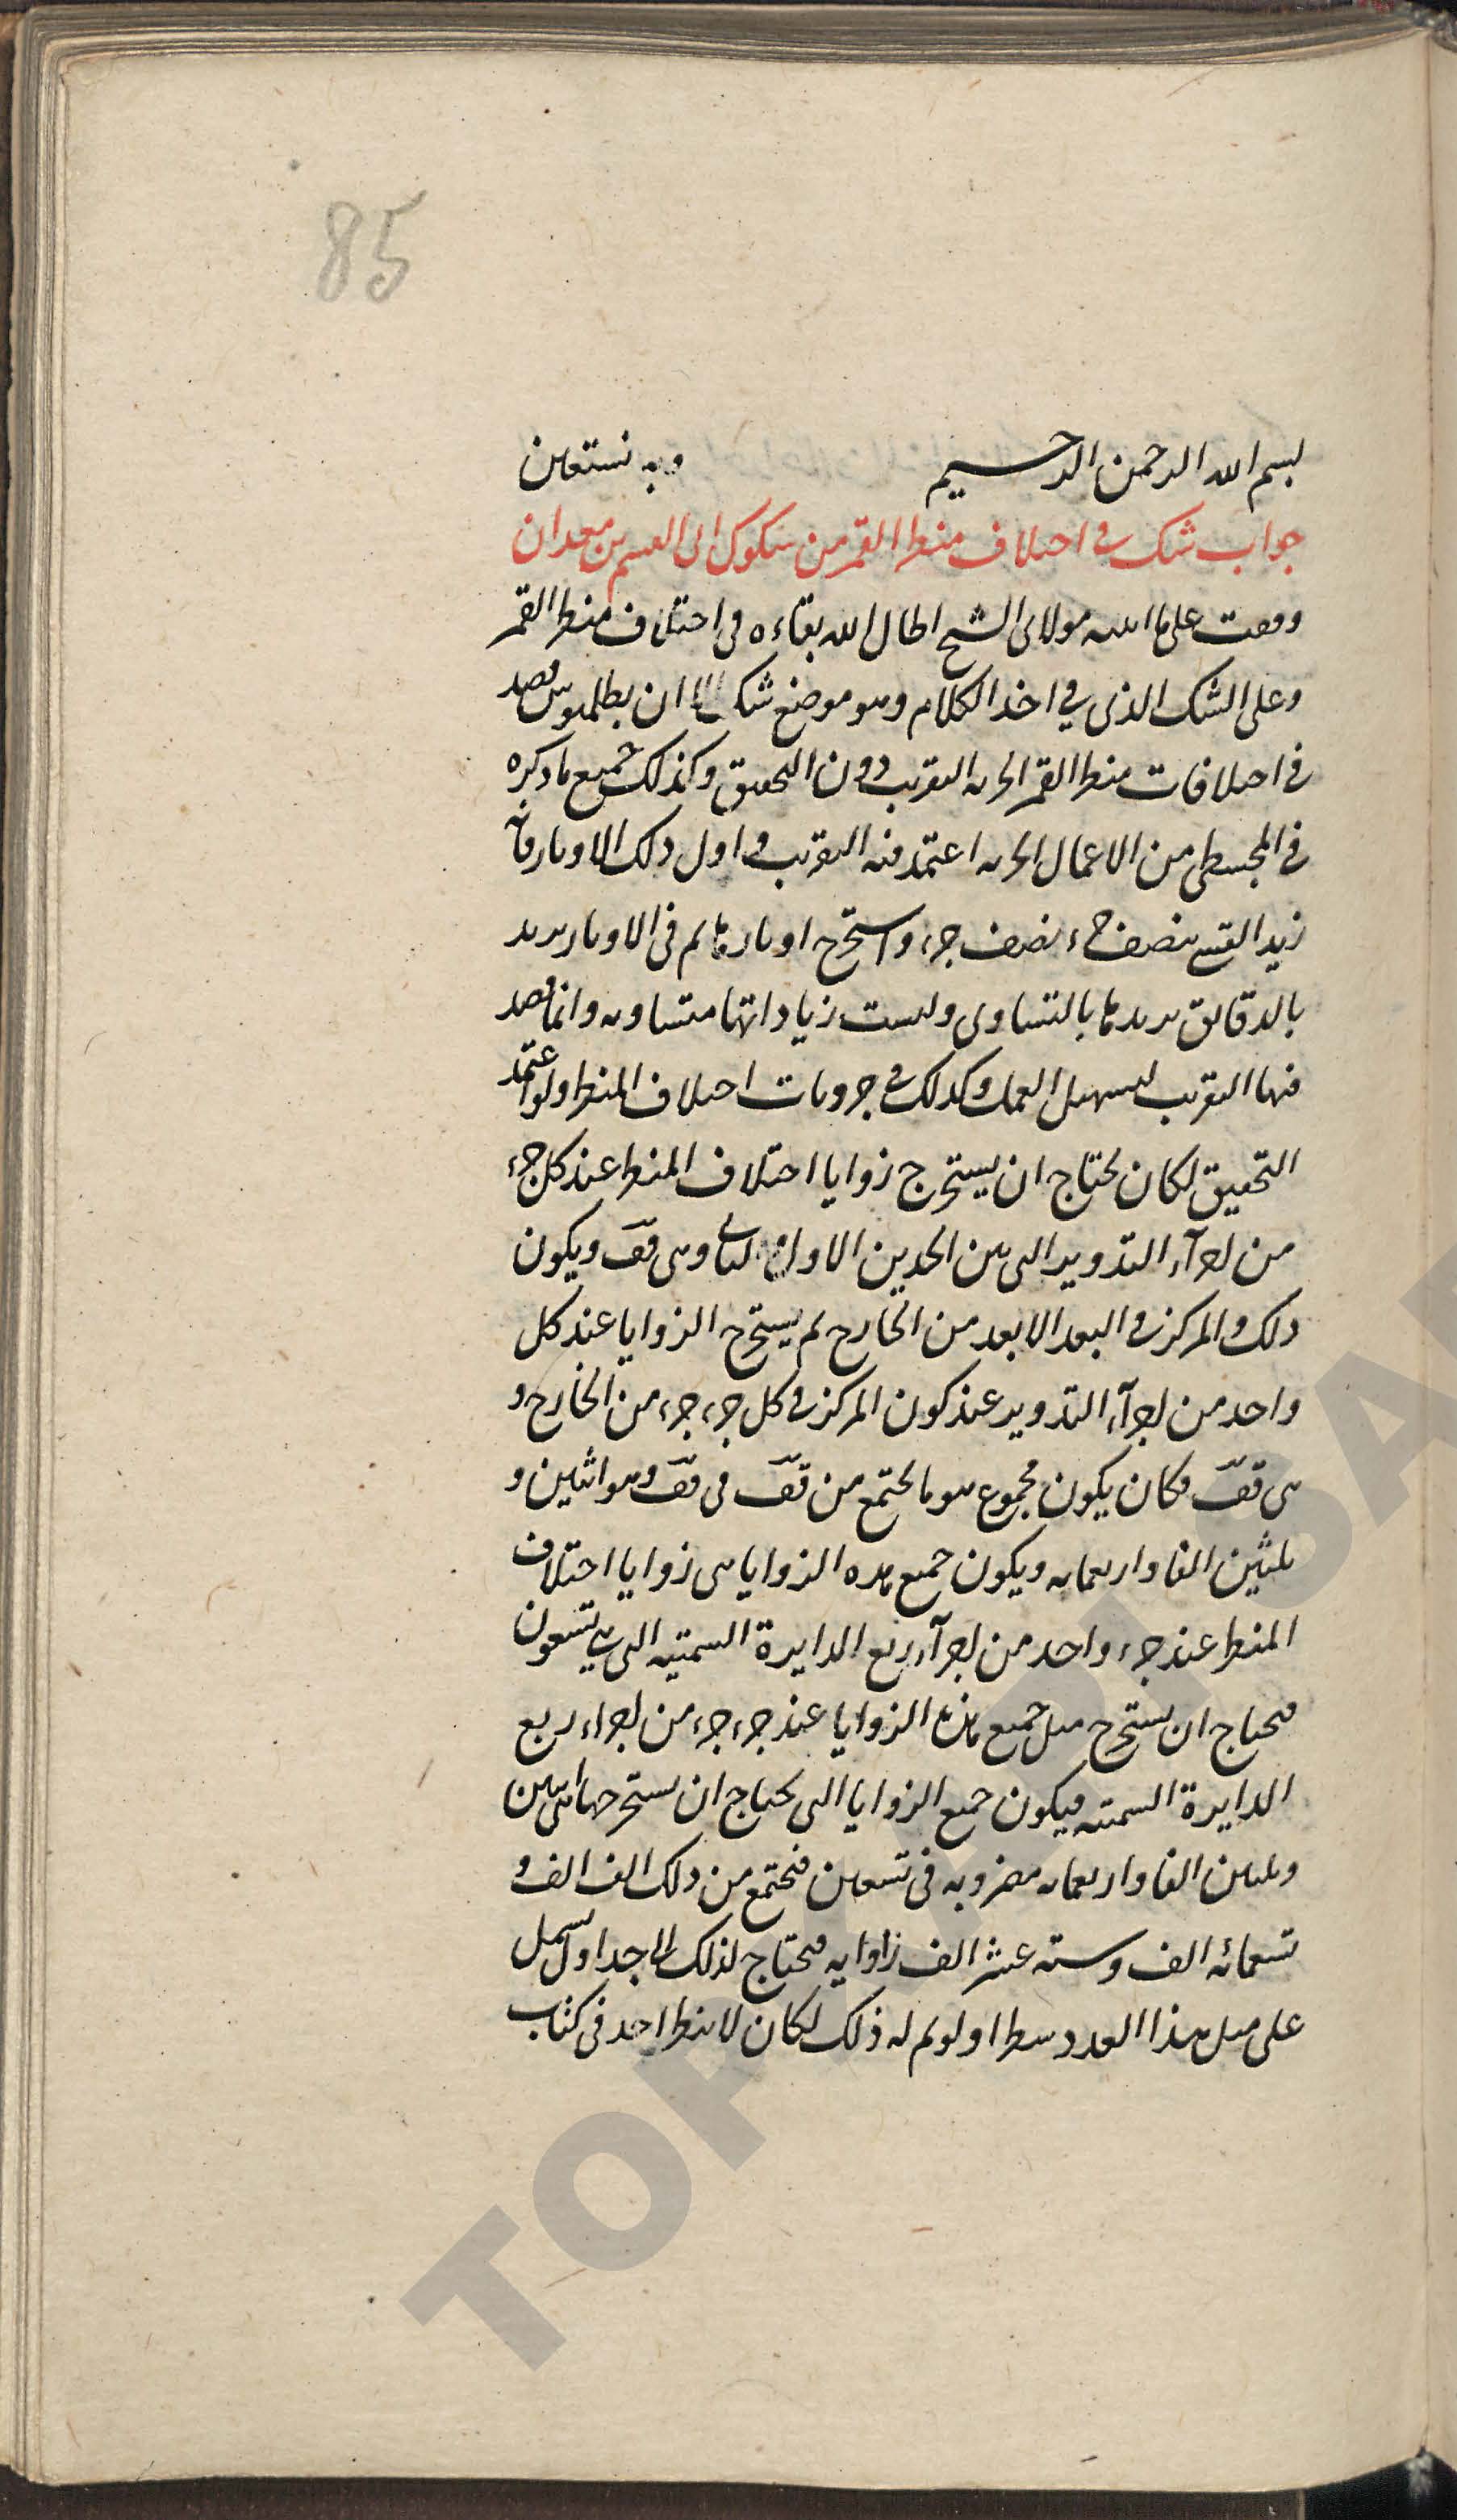 85
بسم الله الرحمن الرحيم وبه نستعين
جواب شك في اختلاف منظر القمر من شكوك ابى القسم بن معدان
وقفت على ما اثبته مولاى الشيخ اطال الله بقاءه فى اختلاف منظر القمر
وعلى الشك الذى في اخذ الكلام وهو موضع شك ان بطلميوس قصد
فى اختلافات منظر القمر الجزئيه التقريب دون التحقيق وكذلك جميع ما ذكره
فى المجسطى من الاعمال الجزئيه اعتمد فيه التقريب فى اول ذلك الاوتار فانه
زيد القسى بنصف جزء نصف جزء واستخرج اوتارها ثم فى الاوتار تزيد
بالدقايق تزيدها بالتساوى وليست زياداتها متساويه وانما قصد
فيها التقريب لتسهيل العمل وكذلك فى جزويات اختلاف المنظر ولو اعتمد
التحقيق لكان يحتاج ان يستخرج زوايا اختلاف المنظر عند كل جزء
من اجزآء التدوير التى بين الحدين الاول والثانى وهى قف ويكون
ذلك والمركز فى البعد الابعد من الخارج ثم يستخرج الزوايا عند كل
واحد من اجزآء التدوير عند كون المركز فى كل جزء جزء من الخارج و
هى قف فكان يكون مجموع هو ما يجتمع من قف فى قف وهو اثنين و
ثلثين الفا واربعمايه ويكون جميع هذه الزوايا هى زوايا اختلاف
المنظر عند جزء واحد من اجزآء ربع الدايرة السمتيه التى هى تسعون
فيحتاج ان يستخرج مثل جميع هذه الزوايا عند جزء جزء من اجزاء ربع
الدايرة السمتيه فيكون جميع الزوايا التى يحتاج ان يستخرجها اثنين
وثلثين الفا واربعمايه مضروبه فى تسعين فيجتمع من ذلك الف الف و
تسعمائه الف وسته عشر الف زاوايه فيحتاج لذلك الى جداول يشتمل
على مثل هذا العدد سطرا ولو تم له ذلك لكان لا ينظر احد فى كتاب
TOPKAPI SA